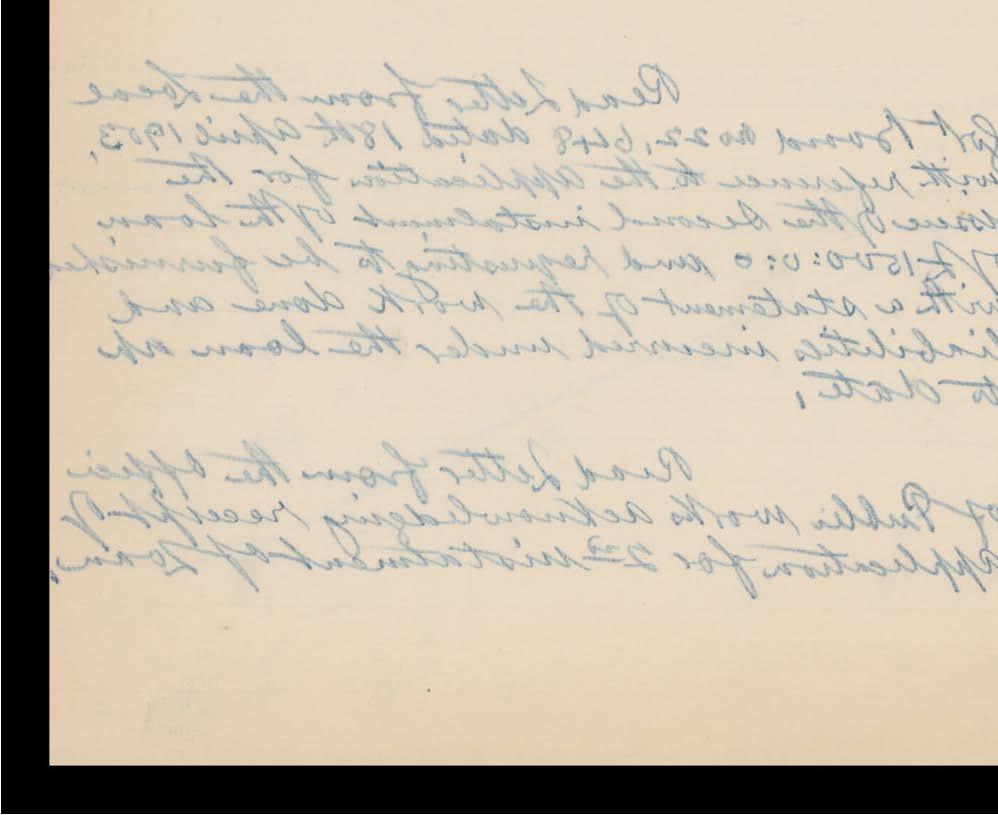 Read Letter from the Local
Govt Board No 22,648 dated 18th April 1903,
with reference to the application for the
issue of the second instalment of the loan
of £1500:0:0 and requesting to be furnished
with a statement of the work done and
liabilities incurred under the loan up
to date,
Read Letter from the Office
of Public works acknowledging receipt of
application for 2nd instalment of Loan,